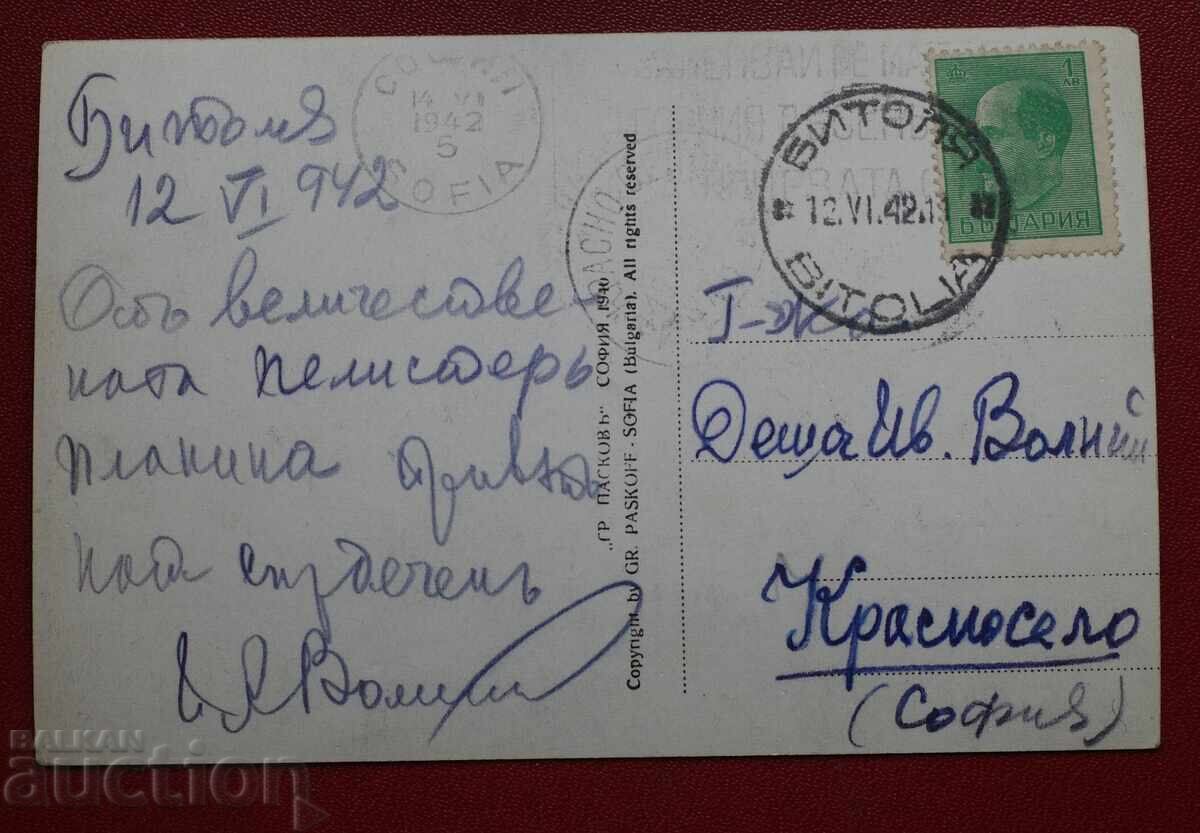 Битоля
12 VI 942
Отъ величестве-
ната Пелистеръ
планина
сърдеченъ
СОФИЯ
14 VI
1942
5
SOFIA
КРАСНО
„ГР ПАСКОВЪ" СОФИЯ 1940
Copyright by GR. PASKOFF - SOFIA (Bulgaria). All rights reserved
1
ЛВ
БЪЛГАРИЯ
БИТОЛЯ
12.VI.42.1
BITOLIA
Г-жа
Деша Ив.
Красно село
(София)
BALKAN
auction